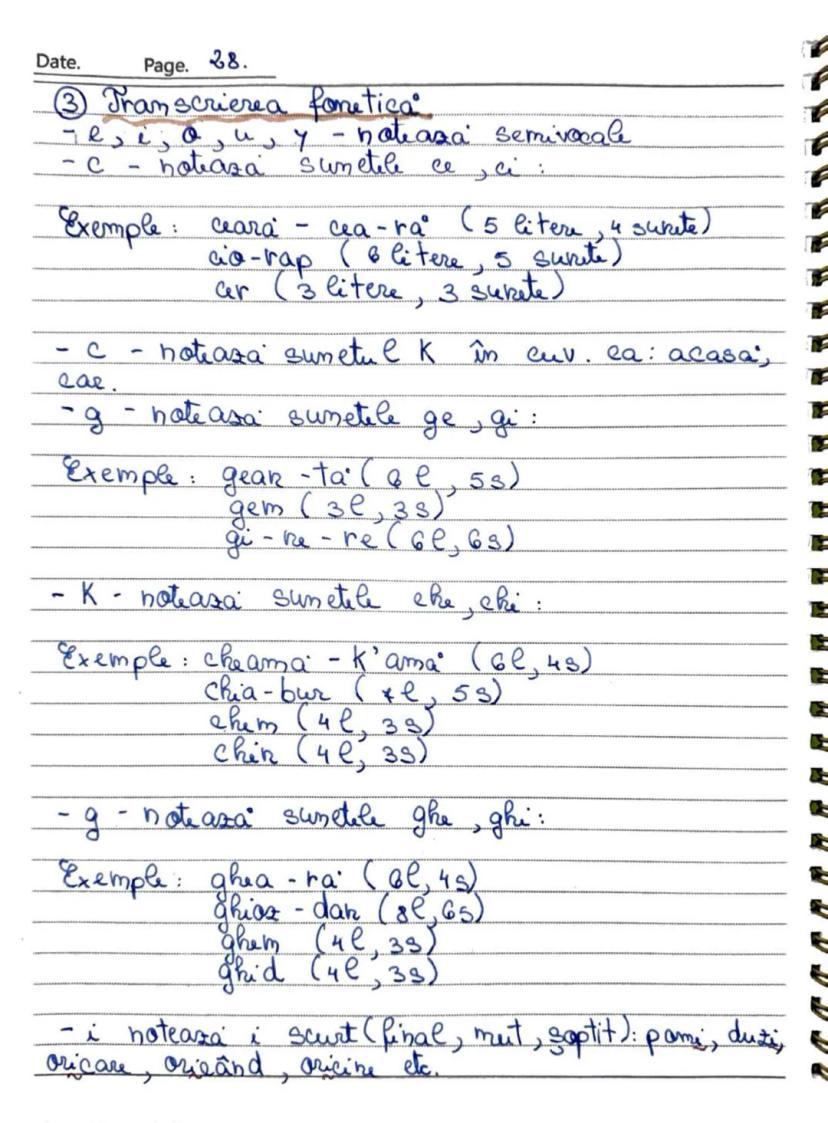 Date. Page. 28.
③ Transcrierea fonetică
- e, i, o, u, y - notează semivocale
- c - notează sunetele ce, ci :
Exemple: ceară - cea-ră (5 litere, 4 sunete)
cio-rap (6 litere, 5 sunete)
cer (3 litere, 3 sunete)
- c - notează sunetul K în cuv. ca: acasă,
cac.
- g - notează sunetele ge, gi :
Exemple: gean-tă (6 l, 5s)
gem (3l, 3s)
gi-ne-re (6l, 6s)
- K - notează sunetele che, chi :
Exemple: cheamă - K'amă (6l, 4s)
chia-bur (7l, 5s)
chem (4l, 3s)
chin (4l, 3s)
- g - notează sunetele ghe, ghi :
Exemple: ghea-ră (6l, 4s)
ghioz-dan (8l, 6s)
ghem (4l, 3s)
ghid (4l, 3s)
- i notează i scurt (final, mut, șoptit): pomi, duzi,
oricare, oricând, oricine etc.